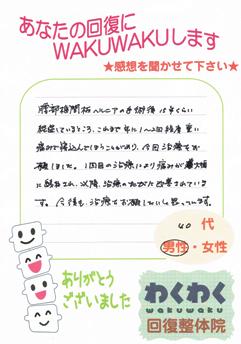 あなたの回復に
WAKUWAKUします
★感想を聞かせて下さい★
腰部椎間板ヘルニアの手術後15年くらい
経過しているところ、これまで年に1〜2回程度重い
痛みで寝込んでしまうこともあり、今回治療をお
願しました。1回目の治療により痛みが
され、以降、治療のたびに改善されていま
す。今後も、治療をお願いしたいと思っています。
40代
男性・女性
ありがとう
ございました
わくわく
wakuwaku
回復整体院